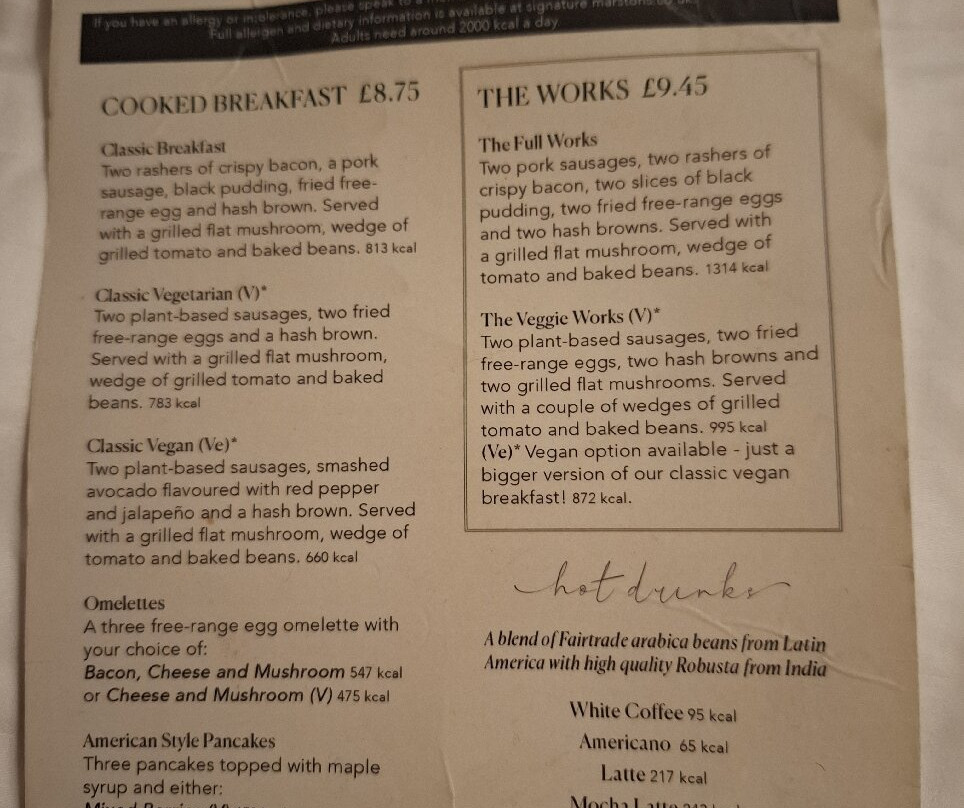 If you have an allergy or intolerance, please speak to a
Full allergen and dietary information is available at signature marstons.co.uk
Adults need around 2000 kcal a day.
COOKED BREAKFAST £8.75
Classic Breakfast
Two rashers of crispy bacon, a pork
sausage, black pudding, fried free-
range egg and hash brown. Served
with a grilled flat mushroom, wedge of
grilled tomato and baked beans. 813 kcal
Classic Vegetarian (V)*
Two plant-based sausages, two fried
free-range eggs and a hash brown.
Served with a grilled flat mushroom,
wedge of grilled tomato and baked
beans. 783 kcal
Classic Vegan (Ve)*
Two plant-based sausages, smashed
avocado flavoured with red pepper
and jalapeño and a hash brown. Served
with a grilled flat mushroom, wedge of
tomato and baked beans. 660 kcal
Omelettes
A three free-range egg omelette with
your choice of:
Bacon, Cheese and Mushroom 547 kcal
or Cheese and Mushroom (V) 475 kcal
American Style Pancakes
Three pancakes topped with maple
syrup and either:
THE WORKS £9.45
The Full Works
Two pork sausages, two rashers of
crispy bacon, two slices of black
pudding, two fried free-range eggs
and two hash browns. Served with
a grilled flat mushroom, wedge of
tomato and baked beans. 1314 kcal
The Veggie Works (V)*
Two plant-based sausages, two fried
free-range eggs, two hash browns and
two grilled flat mushrooms. Served
with a couple of wedges of grilled
tomato and baked beans. 995 kcal
(Ve)* Vegan option available - just a
bigger version of our classic vegan
breakfast! 872 kcal.
hot drinks
A blend of Fairtrade arabica beans from Latin
America with high quality Robusta from India
White Coffee 95 kcal
Americano 65 kcal
Latte 217 kcal
Mocha Latte